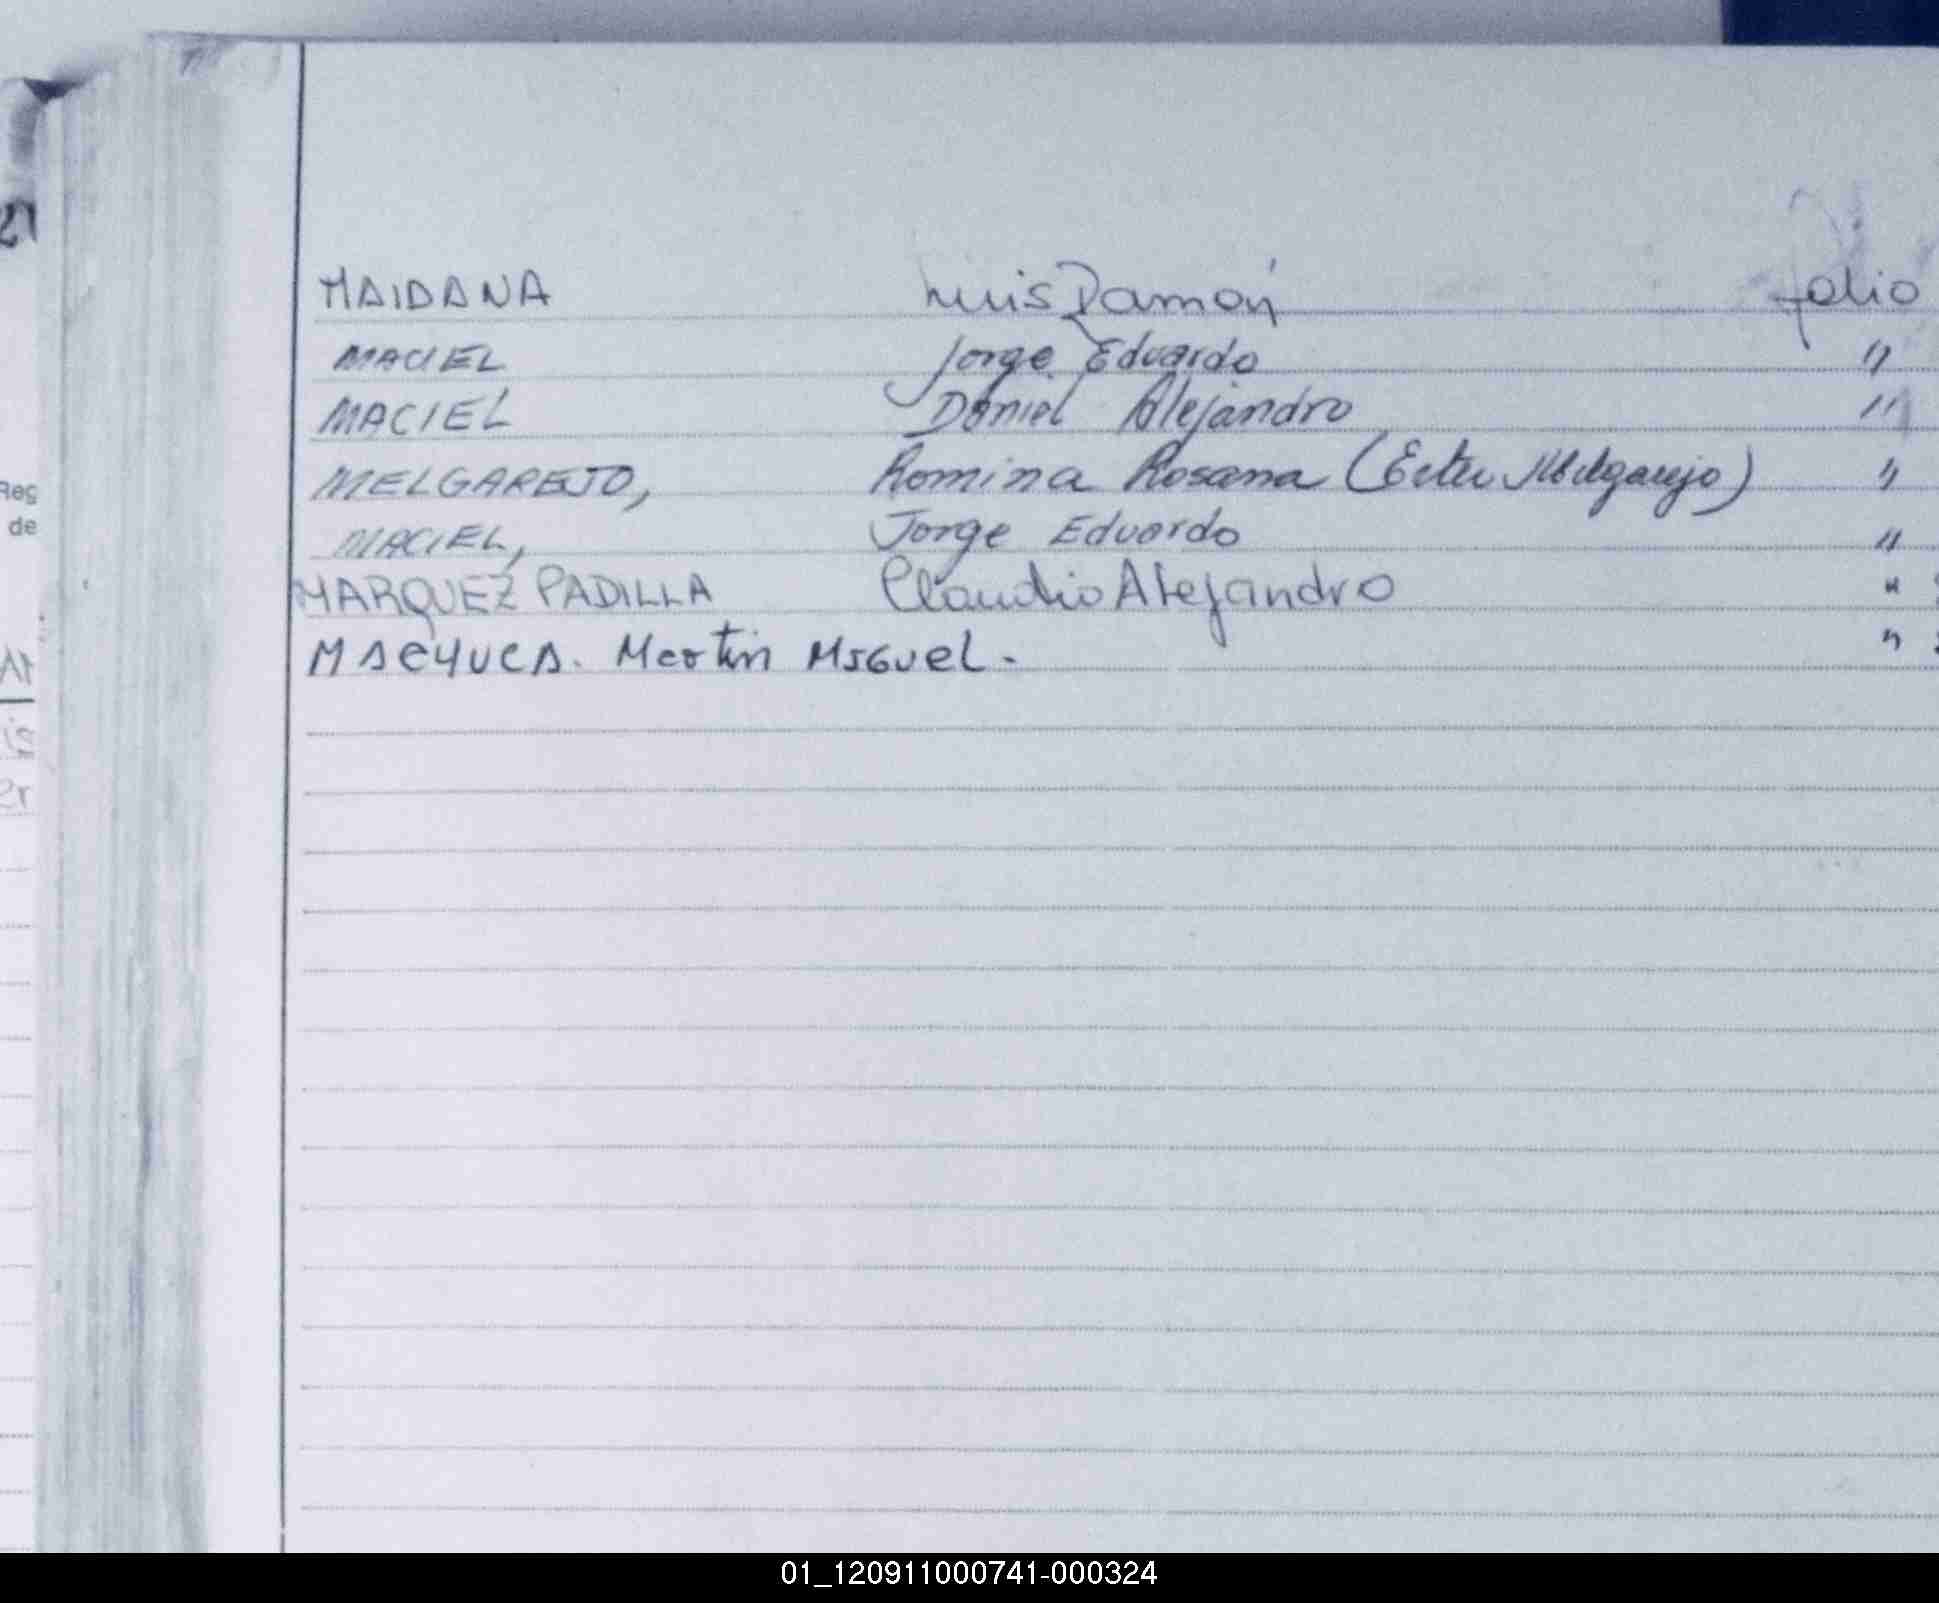 MAIDANA Luis Ramón folio
MACIEL Jorge Eduardo "
MACIEL Daniel Alejandro "
MELGAREJO, Romina Rosana (Ester Melgarejo) "
MACIEL, Jorge Eduardo "
MARQUEZ PADILLA Claudio Alejandro "
MACHUCA. Martin MIGUEL. "
Reg
de
01_120911000741-000324